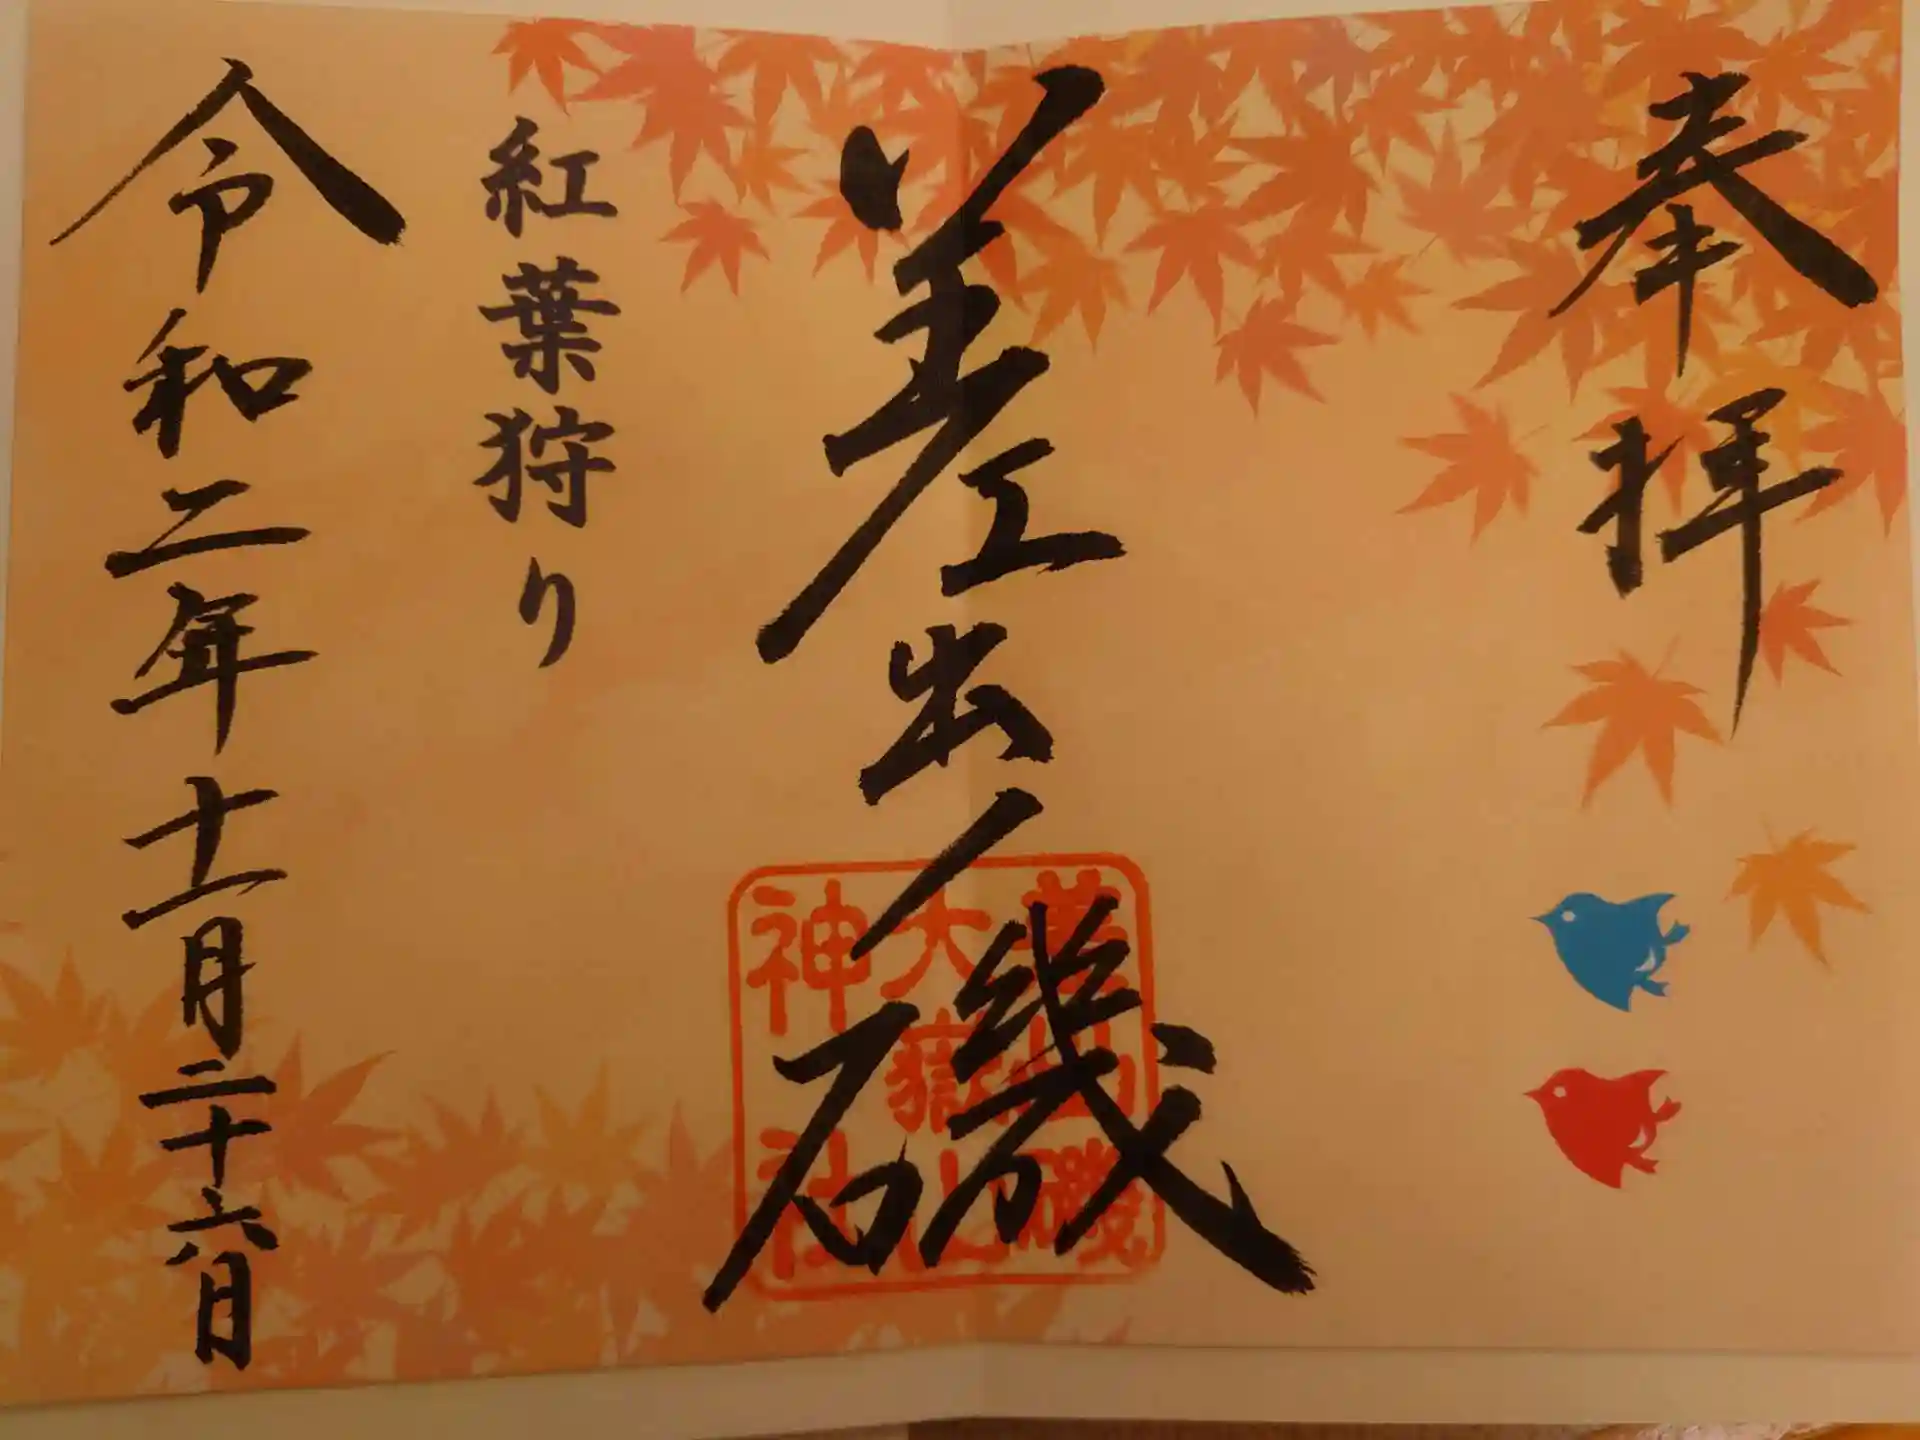 奉拝
差出ノ磯
大嶽山
神社
紅葉狩り
令和二年十一月二十六日